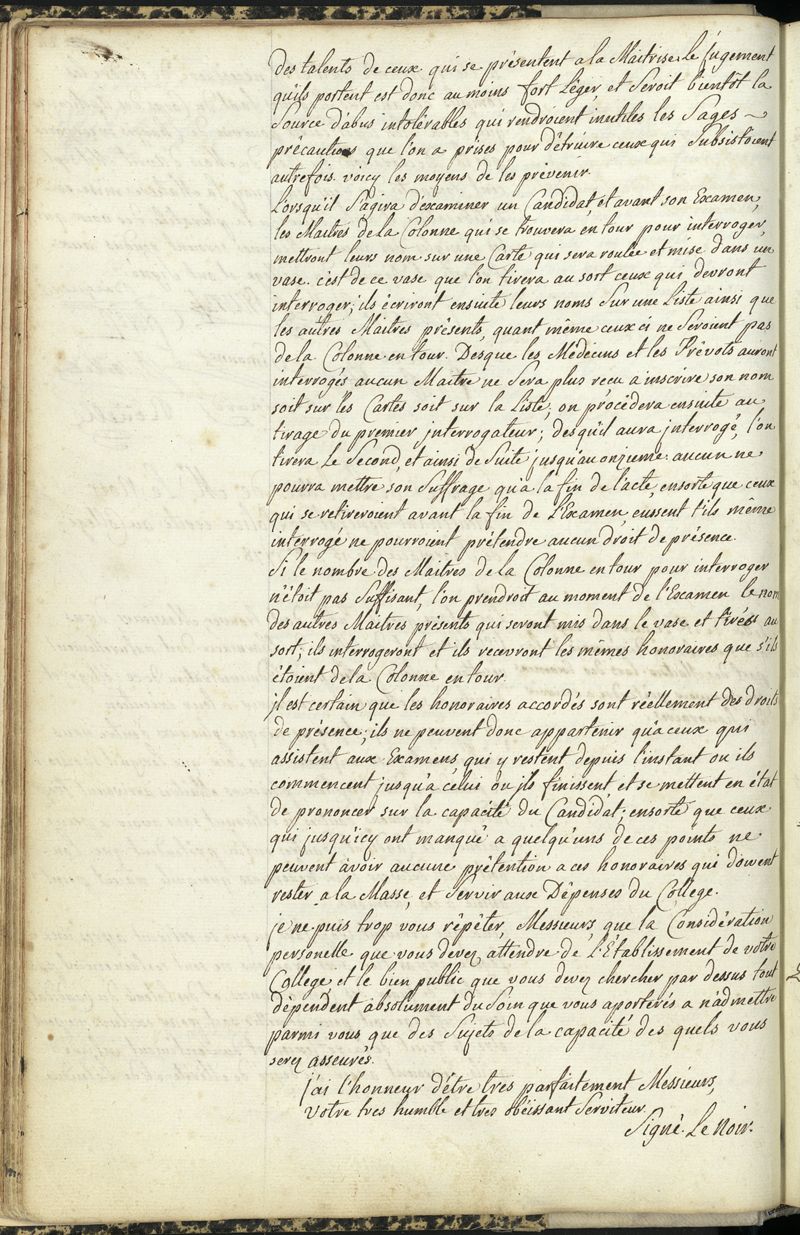 des talents de ceux qui se présentent a la Maitrise. le jugement
qu'ils portent est donc au moins fort Léger, et Seroit bientôt la
Source d'abus intolérables qui rendroient inutiles les Sages ~
précautions que l'on a prises pour détruire ceux qui Subsistoient
autrefois. voicy les moyens de les prévenir.
Lorsqu'il S'agira d'examiner un Candidat, et avant son Examen,
les Maitres de la Colonne qui se trouvera en tour pour interroger,
mettront leurs nom sur une Carte qui sera roulée et mise dans un
vase. c'est de ce vase que l'on tirera au sort ceux qui devront
interroger; ils écriront ensuite leurs noms Sur une Liste ainsi que
les autres Maitres présents, quant même ceux ci ne Seroient pas
de la Colonne en tour. Desque les Médecins et les Prévots auront
interrogés aucun Maitre ne Sera plus recu a inscrire son nom
soit sur les Cartes soit sur la Liste; on procèdera ensuite au
tirage du premier jnterrogateur; desqu'il aura jnterrogé, l'on
tirera Le Second, et ainsi de Suite jusqu'au onzieme. aucun ne
pourra mettre son Suffrage qu'a la fin de l'acte, ensorte que ceux
qui se retireroient avant la fin de L'Examen, eussent t'ils même
interrogé ne pourroient prétendre aucun droit de présence.
Si le nombre des Maitres de la Colonne en tour pour interroger
n'étoit pas Suffisant, l'on prendroit au moment de l'Examen le nom
des autres Maitres présents qui seront mis dans le vase et tirés au
sort; ils interrogeront et ils recevront les mêmes honoraires que s'ils
étoient de la Colonne en tour.
jl est certain que les honoraires accordés sont réellement des droits
de présence; ils ne peuvent donc appartenir qu'a ceux qui
assistent aux Examens, qui y restent depuis l'instant ou ils
commencent jusqu'a celui ou jls finissent, et se mettent en état
de prononcer sur la capacité du Candidat; ensorte que ceux
qui jusqu'icy ont manqué a quelqu'uns de ces points ne
peuvent avoir aucune prétention a ces honoraires qui doivent
rester a la Masse, et Servir aux Dépenses du College.
je ne puis trop vous répéter, Messieurs, que la Considération
personelle que vous devez attendre de L'Etablissement de votre
College, et le bien public que vous devez chercher par dessus tout
dépendent absolument du Soin que vous aporterés a n'admettre
parmi vous que des Sujets de la capacité des quels vous
serez asseurés.
j'ai l'honneur d'être tres parfaitement Messieurs,
Votre tres humble et tres obéissant Serviteur
Signé. Le Noir.